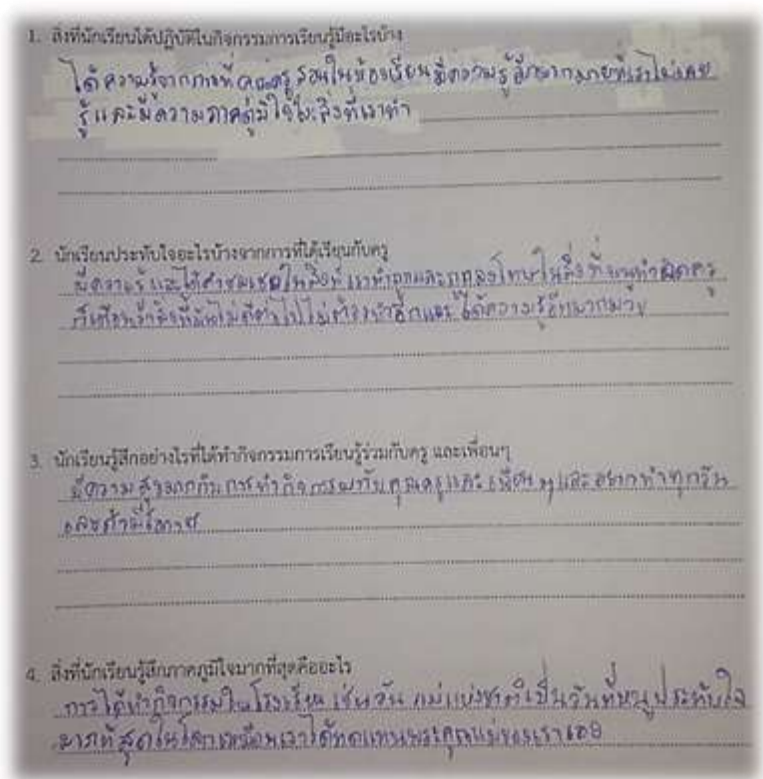 1. สิ่งที่นักเรียนได้ปฏิบัติในกิจกรรมการเรียนรู้มีอะไรบ้าง
ได้ความรู้จากการที่คุณครูสอนในห้องเรียนมีความรู้อีกมากมายที่เราไม่เคย
รู้และมีความภาคภูมิใจในสิ่งที่เราทำ
2. นักเรียนประทับใจอะไรบ้างจากการที่ได้เรียนกับครู
มีความรู้และได้คำชมเชยในสิ่งที่เราทำถูกและถูกลงโทษในสิ่งที่หนูทำผิดครู
สิ่งที่มันไม่ดีไม่ต้องทำอีกและได้ความรู้อีกมากมาย
3. นักเรียนรู้สึกอย่างไรที่ได้ทำกิจกรรมการเรียนรู้ร่วมกับครู และเพื่อนๆ
มีความสุขมากกับการทำกิจกรรมกับคุณครูและเพื่อนๆและอยากทำทุกวัน
เลยถ้ามีโอกาส
4. สิ่งที่นักเรียนรู้สึกภาคภูมิใจมากที่สุดคืออะไร
การได้ทำกิจกรรมในโรงเรียน เช่นวันแม่แห่งชาติเป็นวันที่หนูประทับใจ
มากที่สุดในโลกเหมือนเราได้ทดแทนพระคุณแม่ของเราเลย